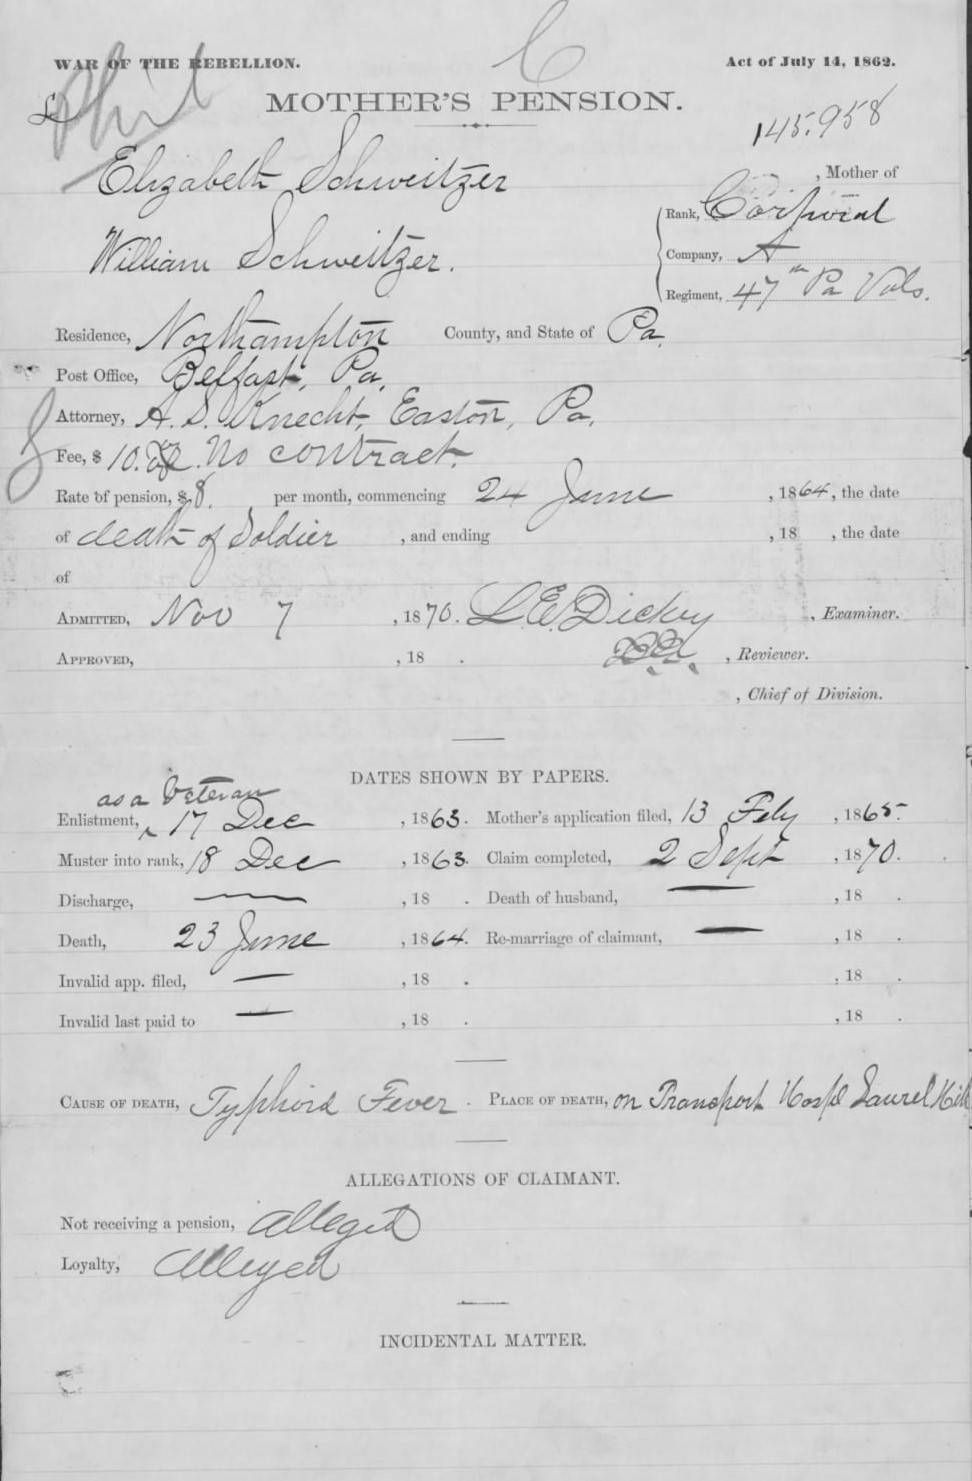 Phil
C
WAR OF THE REBELLION.
Act of July 14, 1862.
MOTHER'S PENSION.
145.958
Elizabeth Schweitzer
, Mother of
William Schweitzer.
Rank, Corporal
Company, A
Regiment, 47th Pa Vols.
Residence, Northampton County, and State of Pa.
Post Office, Belfast, Pa.
Attorney, A. S. Knecht, Easton, Pa.
Fee, $ 10. No contract.
Rate of pension, $ 8. per month, commencing 24 June , 1864, the date
of death of Soldier , and ending , 18 , the date
of
ADMITTED, Nov 7 , 1870. L E Dickey , Examiner.
APPROVED, , 18 . , Reviewer.
, Chief of Division.
DATES SHOWN BY PAPERS.
as a Veteran
Enlistment, ^ 17 Dec , 1863. Mother's application filed, 13 Feby , 1865.
Muster into rank, 18 Dec , 1863. Claim completed, 2 Sept , 1870.
Discharge, — , 18 . Death of husband, — , 18 .
Death, 23 June , 1864. Re-marriage of claimant, — , 18 .
Invalid app. filed, — , 18 . , 18 .
Invalid last paid to — , 18 . , 18 .
CAUSE OF DEATH, Typhoid Fever . PLACE OF DEATH, on Transport Hospl Laurel Hill
ALLEGATIONS OF CLAIMANT.
Not receiving a pension, alleged
Loyalty, Alleged
INCIDENTAL MATTER.